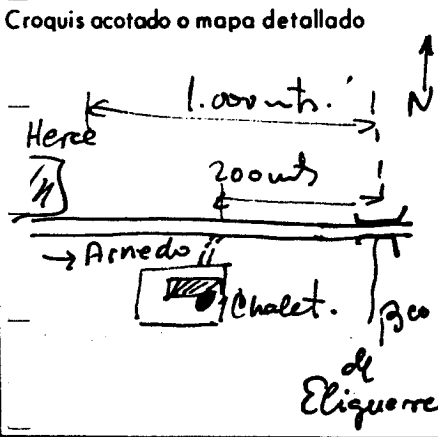 Croquis acotado o mapa detallado
1.000 mts.
N
Herce
200 mts
→ Arnedo
Chalet.
Bco
de
Eliguerre